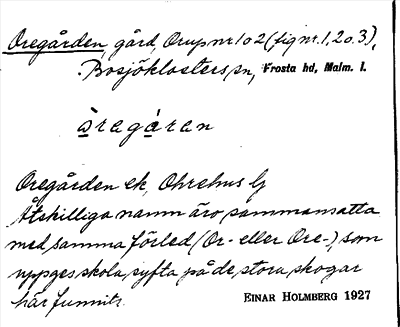 Oregården, gård, Orup nr 1 o 2 (fig nr. 1, 2 o. 3),
Bosjöklosters sn, Frosta hd, Malm. l.
òregáren
Oregården ek, Ohrehus lj
Åtskilliga namn äro sammansatta
med samma förled (Or- eller Ore-), som
uppges skola syfta på de stora skogar
här funnits.
EINAR HOLMBERG 1927